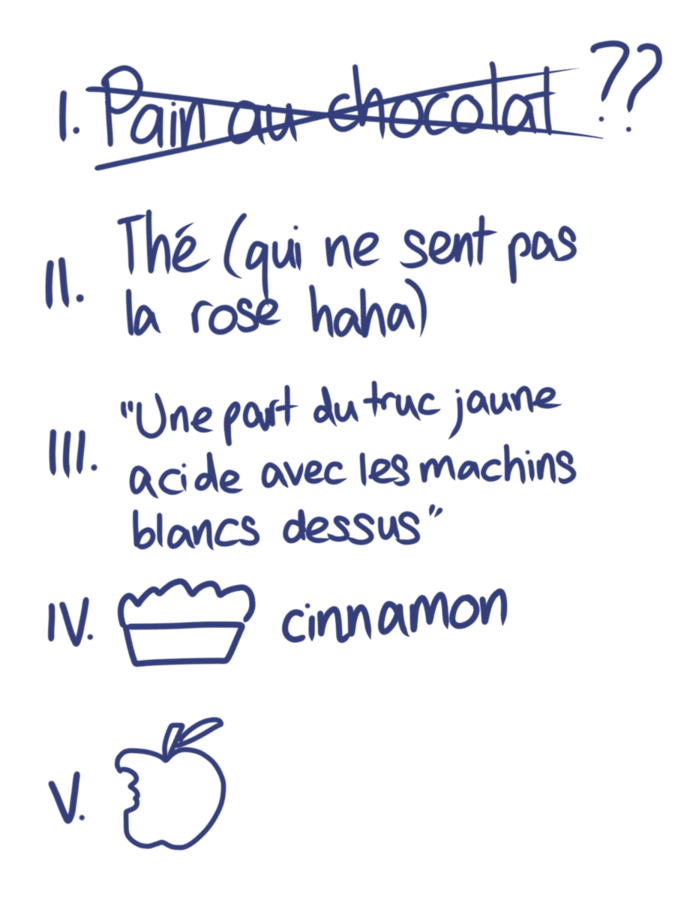 I. Pain au chocolat ??
II. Thé (qui ne sent pas
la rose haha)
III. "Une part du truc jaune
acide avec les machins
blancs dessus"
IV. cinnamon
V.